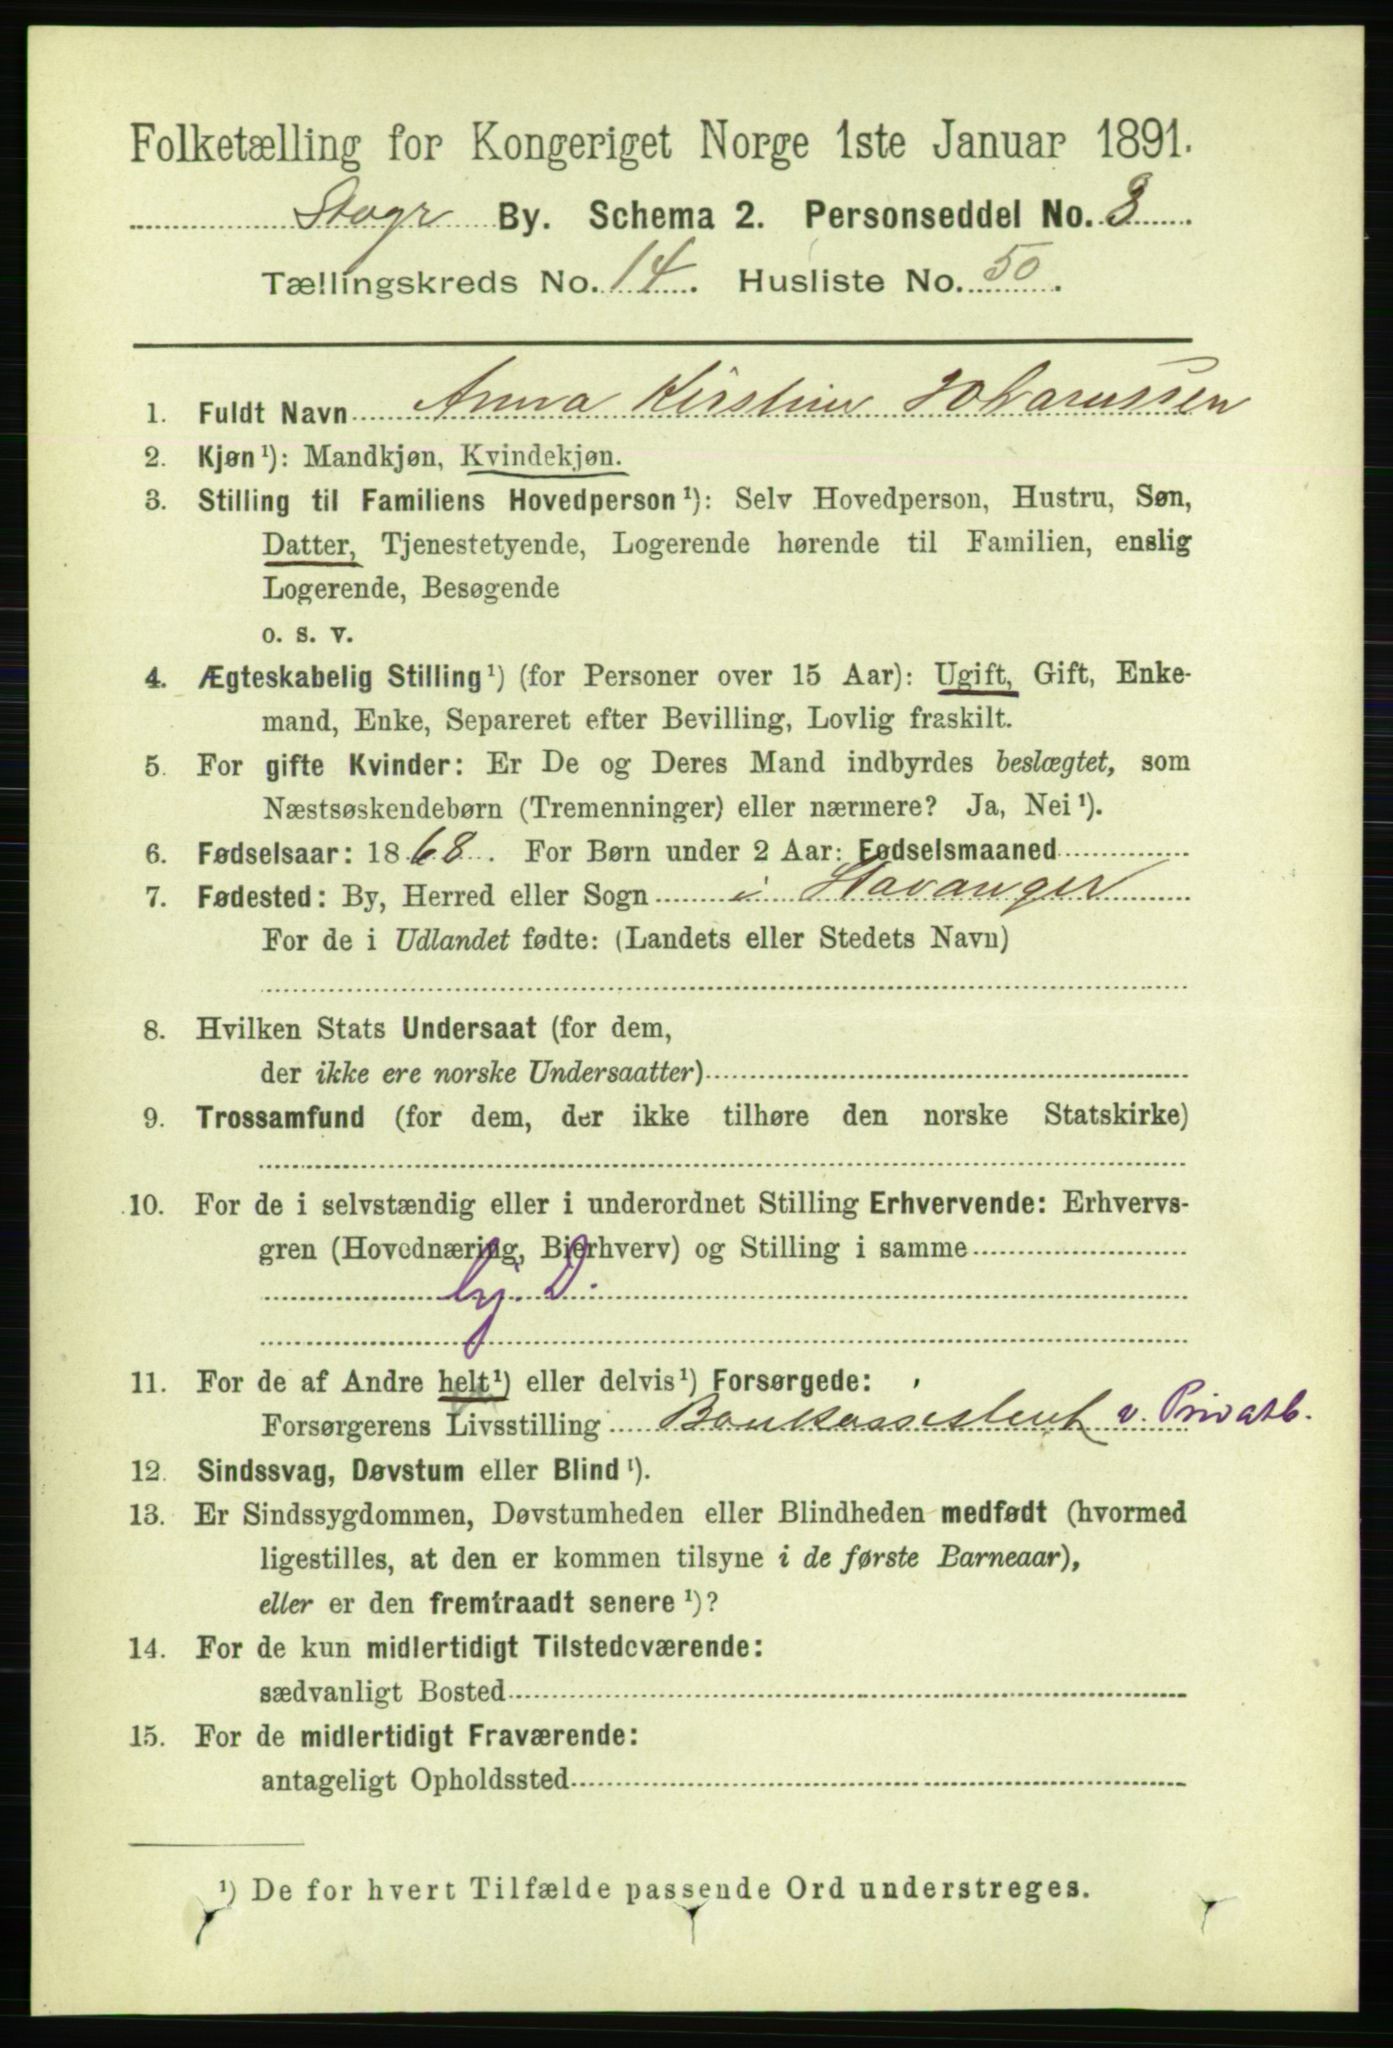 Folketælling for Kongeriget Norge 1ste Januar 1891.
Stvgr By. Schema 2. Personseddel No. 3
Tællingskreds No. 14. Husliste No. 50.
1. Fuldt Navn Anna Kirstine Johanussen
2. Kjøn ¹): Mandkjøn, Kvindekjøn.
3. Stilling til Familiens Hovedperson ¹): Selv Hovedperson, Hustru, Søn,
Datter, Tjenestetyende, Logerende hørende til Familien, enslig
Logerende, Besøgende
o. s. v.
4. Ægteskabelig Stilling ¹) (for Personer over 15 Aar): Ugift, Gift, Enke-
mand, Enke, Separeret efter Bevilling, Lovlig fraskilt.
5. For gifte Kvinder: Er De og Deres Mand indbyrdes beslægtet, som
Næstsøskendebørn (Tremenninger) eller nærmere? Ja, Nei ¹).
6. Fødselsaar: 1868. For Børn under 2 Aar: Fødselsmaaned
7. Fødested: By, Herred eller Sogn i Stavanger
For de i Udlandet fødte: (Landets eller Stedets Navn)
8. Hvilken Stats Undersaat (for dem,
der ikke ere norske Undersaatter)
9. Trossamfund (for dem, der ikke tilhøre den norske Statskirke)
10. For de i selvstændig eller i underordnet Stilling Erhvervende: Erhvervs-
gren (Hovednæring, Bierhverv) og Stilling i samme
hj. D.
11. For de af Andre helt ¹) eller delvis ¹) Forsørgede:
Forsørgerens Livsstilling Bankassistent v. Privatb.
12. Sindssvag, Døvstum eller Blind ¹).
13. Er Sindssygdommen, Døvstumheden eller Blindheden medfødt (hvormed
ligestilles, at den er kommen tilsyne i de første Barneaar),
eller er den fremtraadt senere ¹)?
14. For de kun midlertidigt Tilstedeværende:
sædvanligt Bosted
15. For de midlertidigt Fraværende:
antageligt Opholdssted
¹) De for hvert Tilfælde passende Ord understreges.